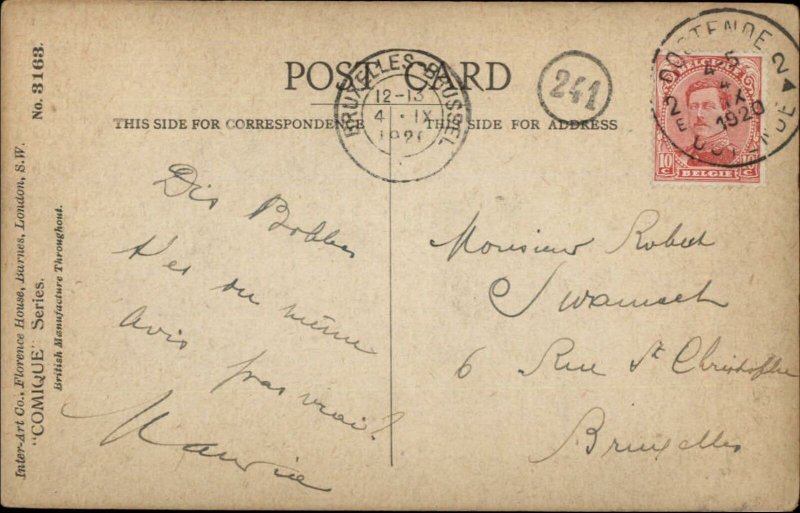 POST CARD
THIS SIDE FOR CORRESPONDENCE
THIS SIDE FOR ADDRESS
BRUXELLES-BRUSSEL
12-13
4 IX
1920
241
OOSTENDE 2
4 IX
1920
2 E
OSTENDE
BELGIQUE
10c 10c
BELGIE
Dis Bobby
t'es du même
avis pas vrai?
Maurice
Monsieur Robert
6 Rue St Christophe
Bruxelles
Inter-Art Co., Florence House, Barnes, London, S.W.
"COMIQUE" Series.
British Manufacture Throughout.
No. 3163.